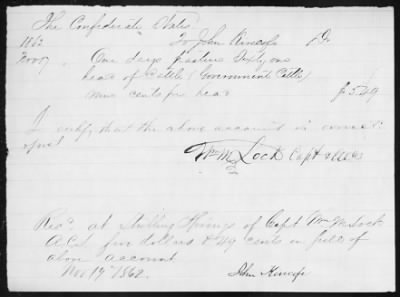 The Confederate States
1862 To John Kincafe Dr
Nov 7 . One days pasture Sixty one
head of Cattle (Government Cattle)
nine cents per head $5.49
I certify that the above account is correct
& just
Wm M Lock Capt & ACS
Recd at Stribling Springs of Capt Wm M Lock
A.C.S. five dollars & 49 cents in full of
above account
Nov 19th 1862.
John Kincafe